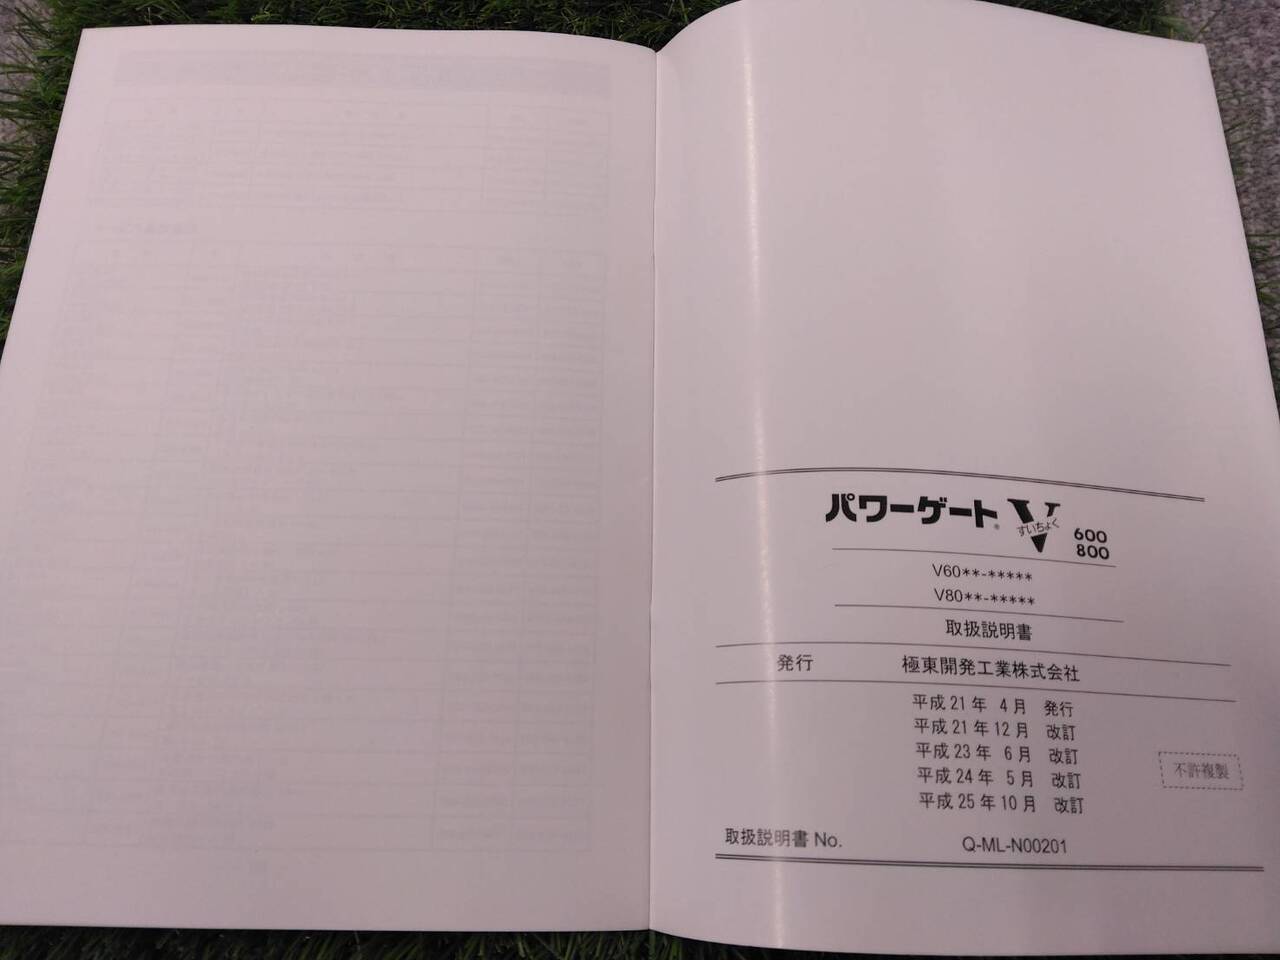 パワーゲート® V すいちょく 600 800
V60**-*****
V80**-*****
取扱説明書
発行 極東開発工業株式会社
平成21年 4月 発行
平成21年12月 改訂
平成23年 6月 改訂
平成24年 5月 改訂
平成25年10月 改訂
不許複製
取扱説明書 No. Q-ML-N00201